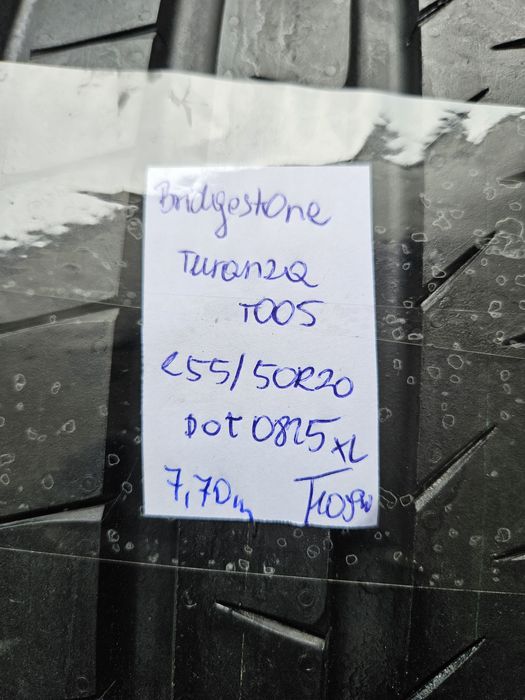 Bridgestone
Turanza
T005
255/50R20
DOT 0825 XL
7,70m T109W